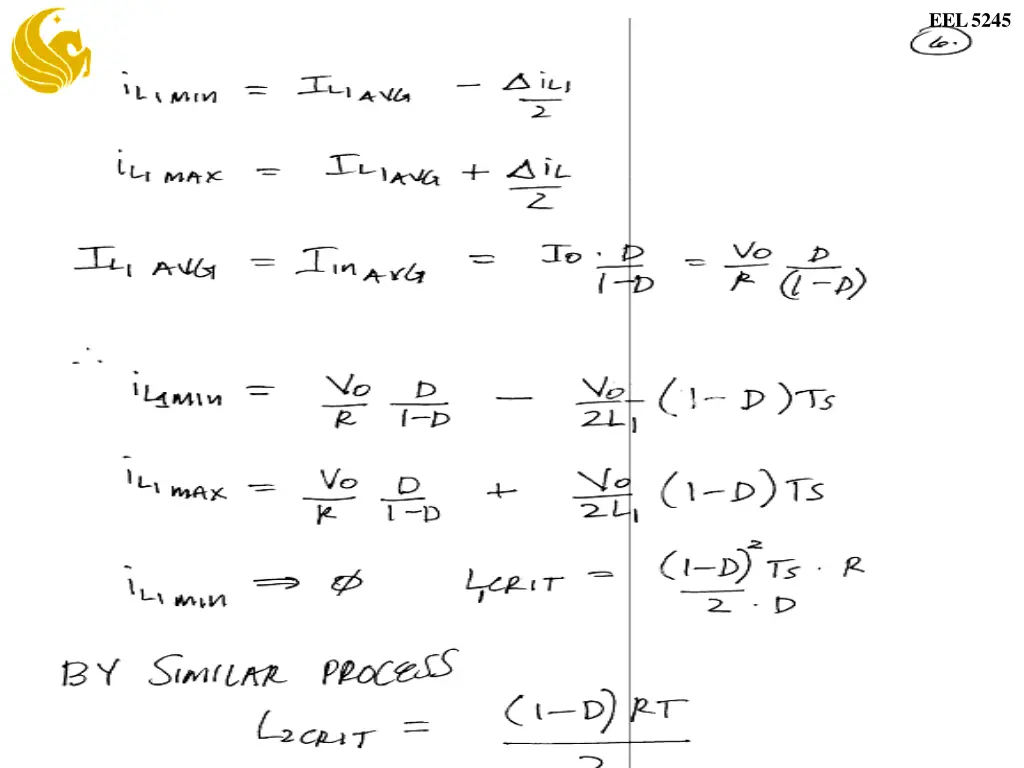 EEL 5245
6.
iL1 MIN = IL1 AVG − ΔiL1/2
iL1 MAX = IL1AVG + ΔiL/2
IL1 AVG = Iin AVG = Io · D/(1−D) = Vo/R D/(1−D)
∴ iL1MIN = Vo/R D/(1−D) − Vo/2L1 (1−D)Ts
iL1 MAX = Vo/R D/(1−D) + Vo/2L1 (1−D)Ts
iL1 MIN ⇒ ∅ L1CRIT = (1−D)² Ts · R / 2 · D
BY SIMILAR PROCESS
L2CRIT = (1−D) RT / 2